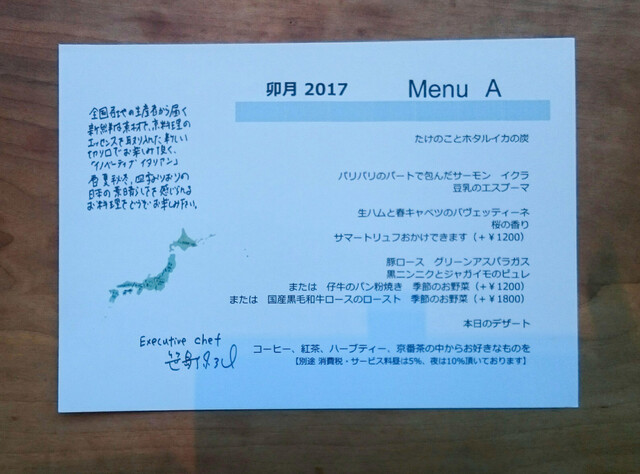 卯月 2017 Menu A
全国各地の生産者から届く
新鮮な素材で、京料理の
エッセンスを取り入れた新しい
切り口でお楽しみ頂く、
「イノベーティブ イタリアン」
春夏秋冬、四季おりおりの
日本の素晴らしさを感じられる
お料理をどうぞお楽しみ下さい。
たけのことホタルイカの炭
パリパリのパートで包んだサーモン イクラ
豆乳のエスプーマ
生ハムと春キャベツのパヴェッティーネ
桜の香り
サマートリュフおかけできます（+￥1200）
豚ロース グリーンアスパラガス
黒ニンニクとジャガイモのピュレ
または 仔牛のパン粉焼き 季節のお野菜（+￥1200）
または 国産黒毛和牛ロースのロースト 季節のお野菜（+￥1800）
本日のデザート
コーヒー、紅茶、ハーブティー、京番茶の中からお好きなものを
【別途 消費税・サービス料昼は5%、夜は10%頂いております】
Executive chef